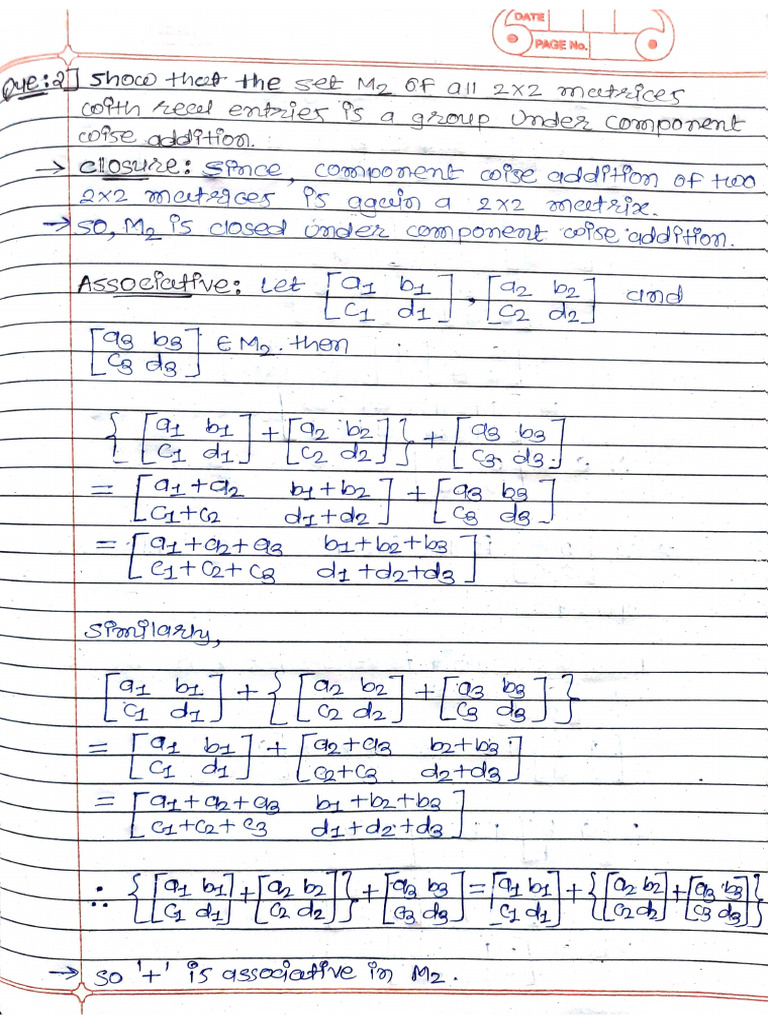 DATE
PAGE No.
Que:2] Show that the set M2 of all 2×2 matrices
with real entries is a group under component
wise addition.
→ closure: since, component wise addition of two
2×2 matrices is again a 2×2 matrix.
→ so, M2 is closed under component wise addition.
Associative: Let [a1 b1] , [a2 b2] and
[c1 d1] [c2 d2]
[a3 b3] ∈ M2. then
[c3 d3]
{ [a1 b1] + [a2 b2] } + [a3 b3]
[c1 d1] [c2 d2] [c3 d3]
= [a1+a2 b1+b2] + [a3 b3]
[c1+c2 d1+d2] [c3 d3]
= [a1+a2+a3 b1+b2+b3]
[c1+c2+c3 d1+d2+d3]
Similarly,
[a1 b1] + { [a2 b2] + [a3 b3] }
[c1 d1] [c2 d2] [c3 d3]
= [a1 b1] + [a2+a3 b2+b3]
[c1 d1] [c2+c3 d2+d3]
= [a1+a2+a3 b1+b2+b3]
[c1+c2+c3 d1+d2+d3]
∴ { [a1 b1] + [a2 b2] } + [a3 b3] = [a1 b1] + { [a2 b2] + [a3 b3] }
[c1 d1] [c2 d2] [c3 d3] [c1 d1] [c2 d2] [c3 d3]
→ so '+' is associative in M2.